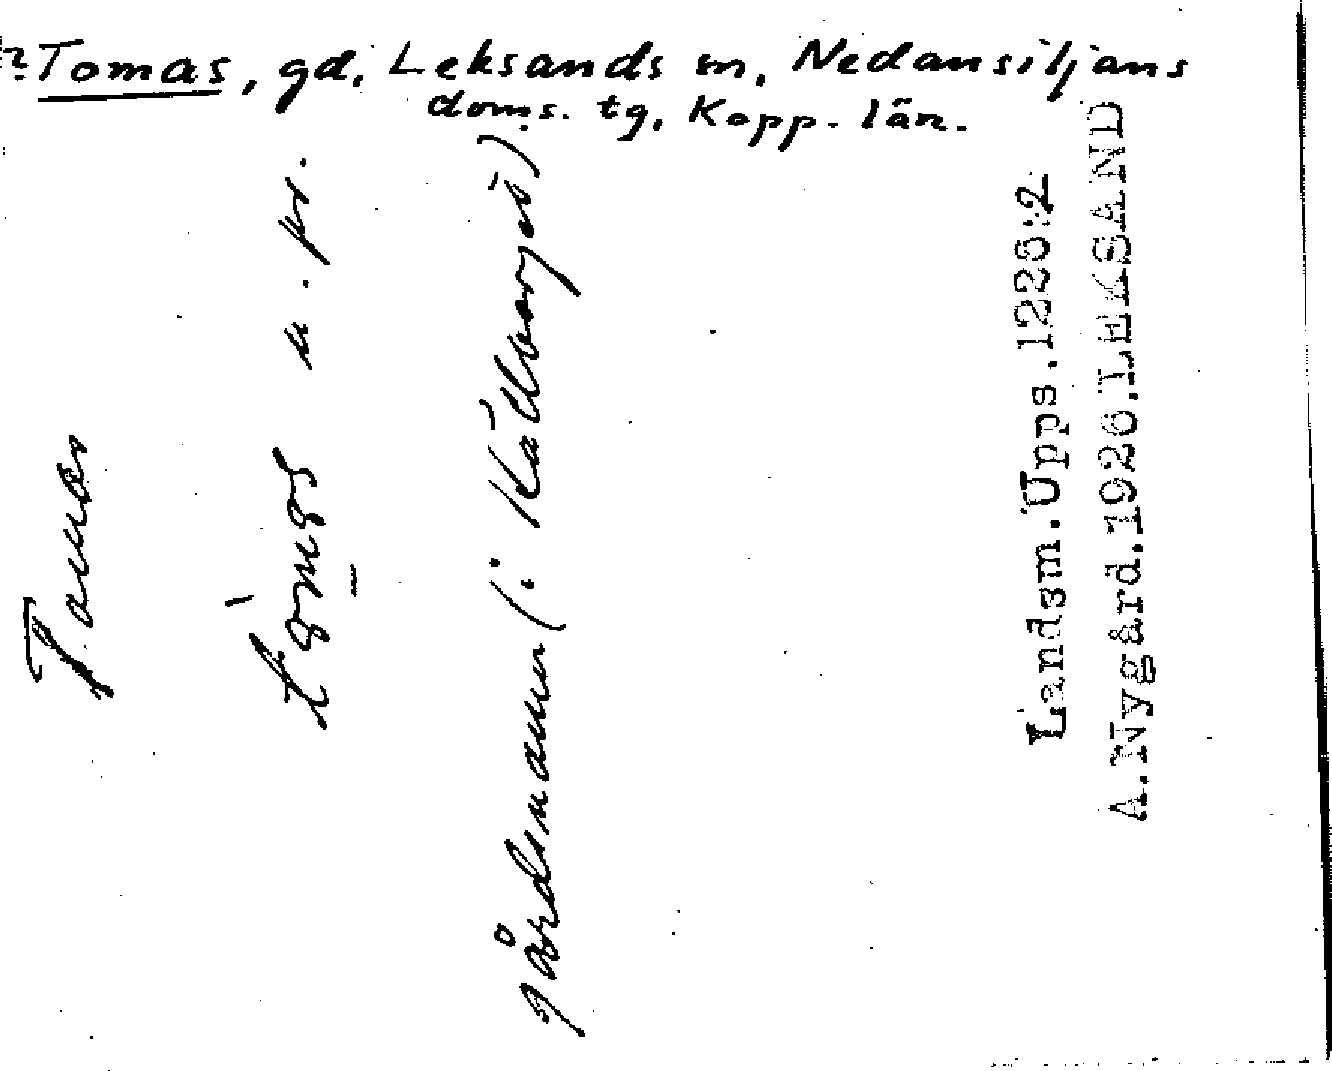 ?Tomas, gd, Leksands sn, Nedansiljans
doms. tg, Kopp. län.
Tomas
tǫ̀mas u. pr.
gårdsnamn (: Källborgs)
Landsm.Upps.1225:2
A.Nygård.1926.LEKSAND